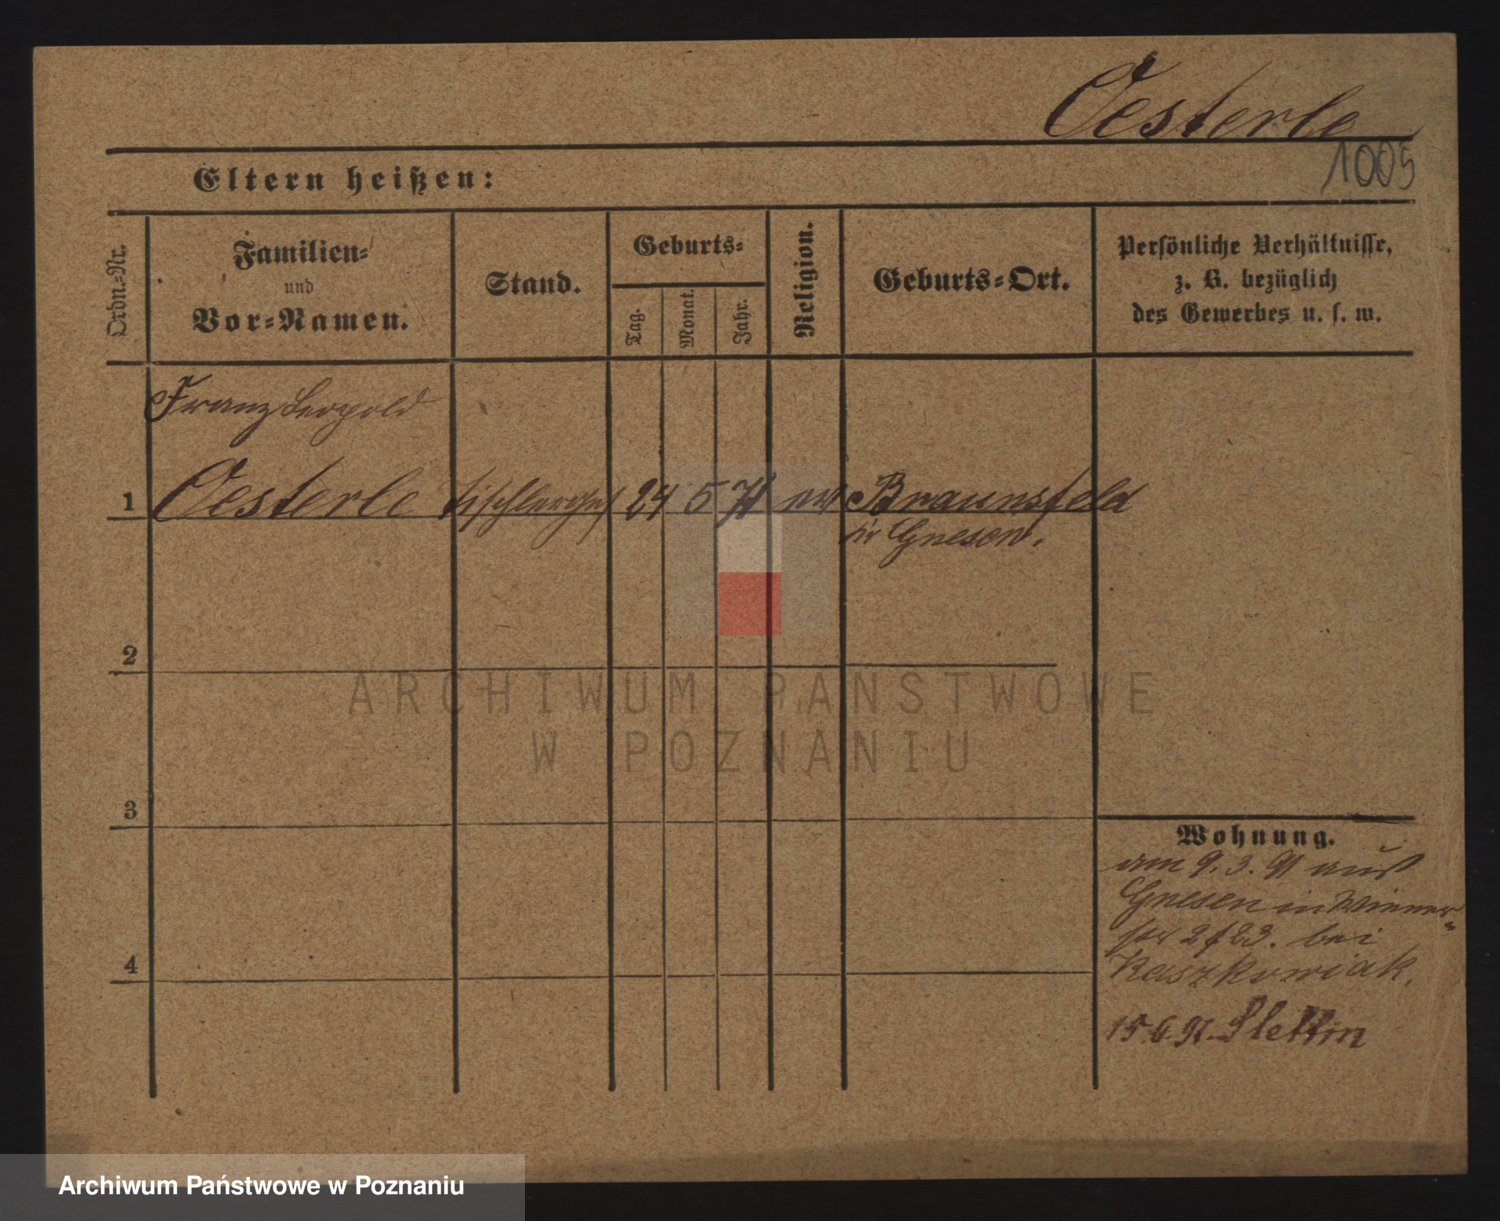 Oesterle
1005
Eltern heißen:
Ordn.-Nr.
Familien-
und
Vor-Namen.
Stand.
Geburts-
Tag.
Monat.
Jahr.
Religion.
Geburts-Ort.
Persönliche Verhältnisse,
z. B. bezüglich
des Gewerbes u. s. w.
Franz Leopold
1 Oesterle Tischlerges 24 5 71 Braunsfeld
Gnesen.
2
ARCHIWUM PAŃSTWOWE
W POZNANIU
3
Wohnung.
am 9. 3. 91 aus
Gnesen in Wiener-
bei
Kaszkowiak.
4
15.6.91. Stettin
Archiwum Państwowe w Poznaniu